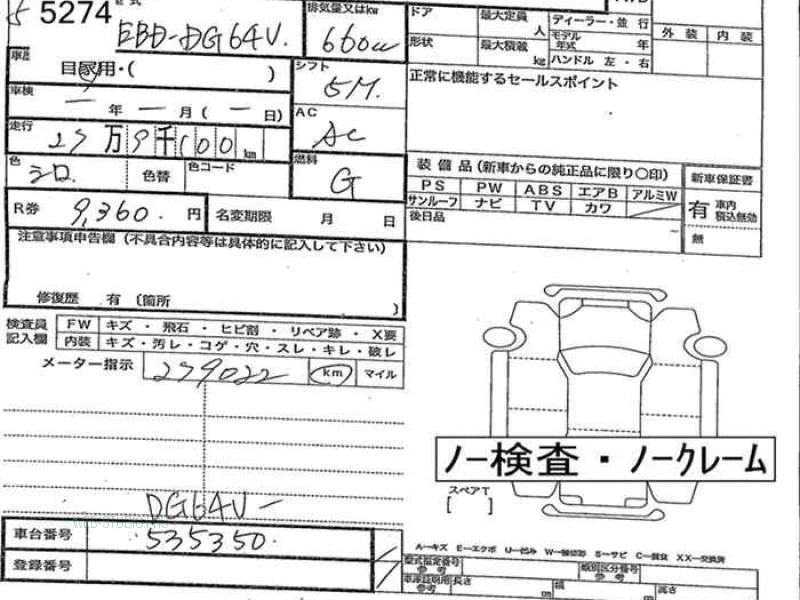 5274
EBD-DG64V.
排気量又はkw
660cc
ドア
最大定員
人
ディーラー・並 行
形状
最大積載
kg
モデル年式
年
ハンドル 左 ・ 右
外 装
内 装
車歴
自家用・( )
車検
一 年 一 月 ( 一 日)
シフト
5M.
正常に機能するセールスポイント
走行
27万9千100km
AC
AC
色
シロ.
色替
色コード
燃料
G
装 備 品 (新車からの純正品に限り〇印)
PS PW ABS エアB アルミW
サンルーフ ナビ TV カワ
後日品
新車保証書
有 車内 積込無効
無
R券
9,360.
円
名変期限 月 日
注意事項申告欄 (不具合内容等は具体的に記入して下さい)
修復歴 有 〔箇所 〕
検査員記入欄
FW キズ ・ 飛石 ・ ヒビ割 ・ リペア跡 ・ X要
内装 キズ・汚レ・コゲ・穴・スレ・キレ・破レ
メーター指示
279022
km
マイル
ノー検査・ノークレーム
スペアT
[ ]
DG64V-
車台番号
535350.
登録番号
A-キズ E-エクボ U-凹み W-補修跡 S-サビ C-腐食 XX-交換済
型式指定番号
参 考
類別区分番号
参 考
車庫証明用
参 考
長さ
cm
幅
cm
高さ